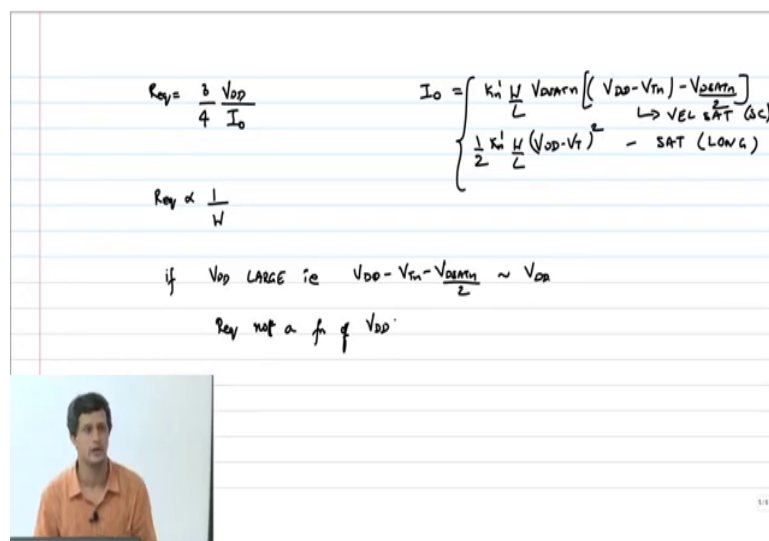 Req = 3/4 VDD/I0
I0 = { Kn' W/L VDSATn [(VDD - VTn) - VDSATn/2]
↳ VEL SAT (SC)
1/2 Kn' W/L (VDD - VT)² - SAT (LONG)
Req ∝ 1/W
if VDD LARGE ie VDD - VTn - VDSATn/2 ~ VDD
Req not a fn of VDD.